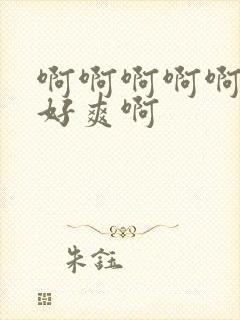 啊啊啊啊啊
好爽啊
朱钰